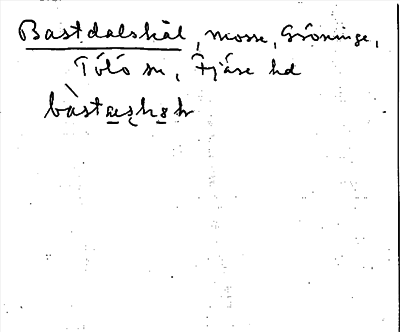 Bastdalskäl, mosse, Gröninge,
Tölö sn, Fjäre hd
bàstæsk